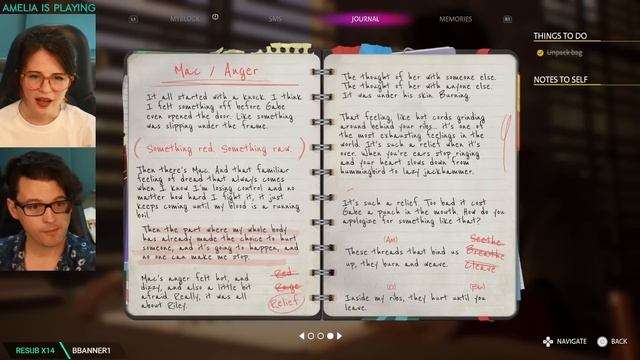 AMELIA IS PLAYING
MYBLOCK
SMS
JOURNAL
MEMORIES
R1
THINGS TO DO
Unpack bag
NOTES TO SELF
Mac / Anger
It all started with a knock. I think
I felt something off before Gabe
even opened the door. Like something
was slipping under the frame.
(Something red. Something raw.)
Then there's Mac. And that familiar
feeling of dread that always comes
when I know I'm losing control and no
matter how hard I fight it, it just
keeps coming until my blood is a running
boil.
Then the part where my whole body
has already made the choice to hurt
someone, and it's going to happen, and
no one can make me stop.
Mac's anger felt hot, and
dizzy, and also a little bit
afraid. Really, it was all
about Riley.
Red
Rage
Relief
The thought of her with someone else.
The thought of her with anyone else.
It was under his skin. Burning.
That feeling, like hot cords grinding
around behind your ribs... it's one of
the most exhausting feelings in the
world. It's such a relief when it's
over. When you're ears stop ringing
and your heart slows down from
hummingbird to lazy jackhammer.
It's such a relief. Too bad it cost
Gabe a punch in the mouth. How do you
apologize for something like that?
(Am)
These threads that bind us
up, they burn and weave.
Seethe
Breathe
Cleave
(D)
Inside my ribs, they hurt until you
leave.
NAVIGATE
BACK
RESUB X14
BBANNER1